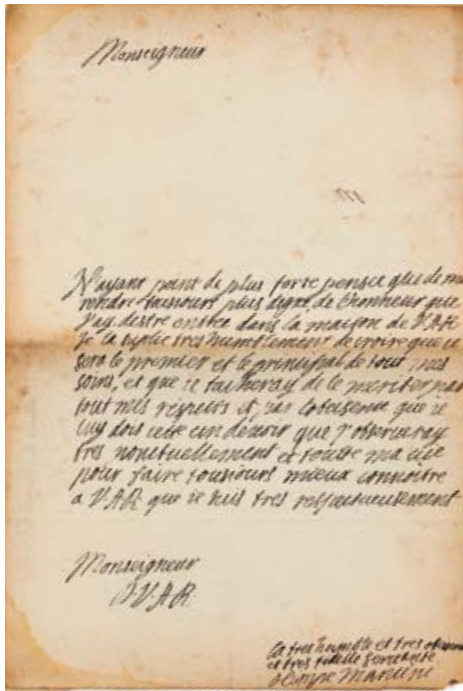 Monseigneur
N'ayant point de plus forte pensée que de me
rendre tousiours plus digne de l'honneur que
J'ay destre entrer dans la maison de V.A.R
Je la suplie tres humblement de croire que ce
sera le premier et le principal de tout mes
soins, et que ie tacheray de le meriter par
tout mes respects et par lobeisence que je
luy dois cete un devoir que J'observeray
tres ponctuellement et toutte ma vie
pour faire tousiours mieux connoitre
a V.A.R que ie suis tres respectueusement
Monseigneur
D V.A.R
la tres humble et tres
et tres fidelle servante
Olimpe Mancini